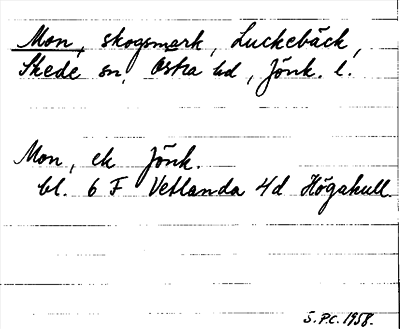 Mon, skogsmark, Luckebäck,
Skede sn, Östra hd, Jönk. l.
Mon, ek Jönk.
bl. 6 F Vetlanda 4d Högahull.
S.P.C. 1958.